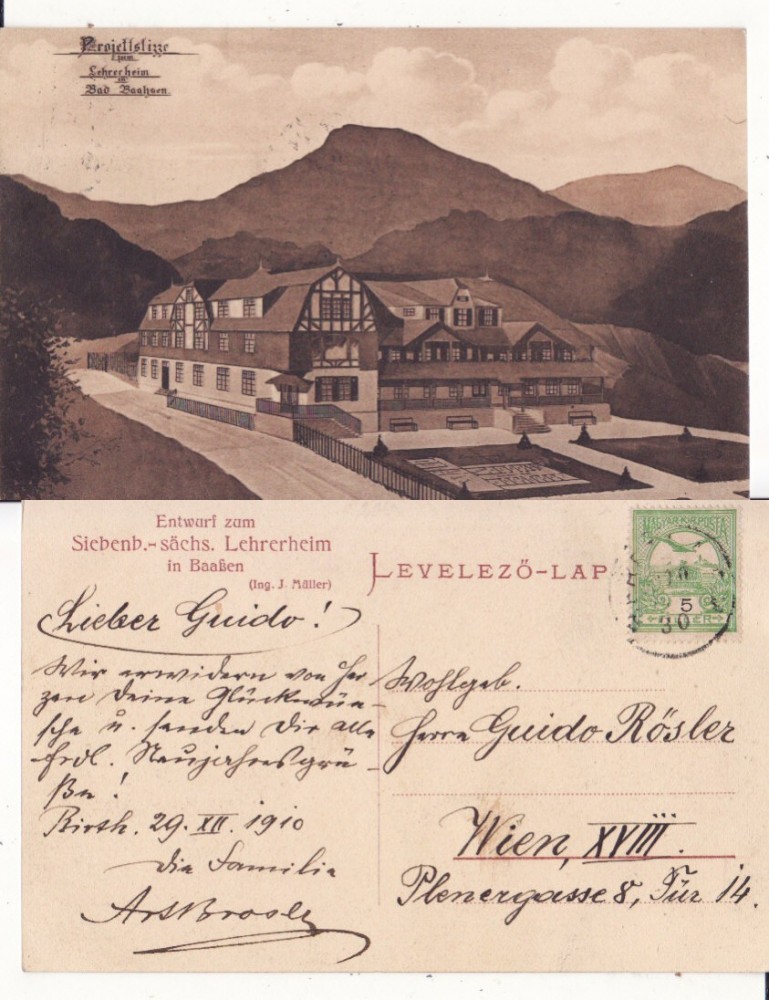 Projektskizze
zum
Lehrerheim
in
Bad Baaßsen
Entwurf zum
Siebenb.-sächs. Lehrerheim
in Baaßen
(Ing. J. Müller)
LEVELEZŐ-LAP
MAGYAR KIR. POSTA
5
FILLÉR
10
30
Lieber Guido!
Wir erwidern von Her
zen Deine Glückwün-
sche u. senden Dir alle
frdl. Neujahrsgrü-
ße!
29. XII. 1910
Die Familie
Wohlgeb.
Herrn Guido Rösler
Wien, XVIII.
Plenergasse 8, Tür 14.